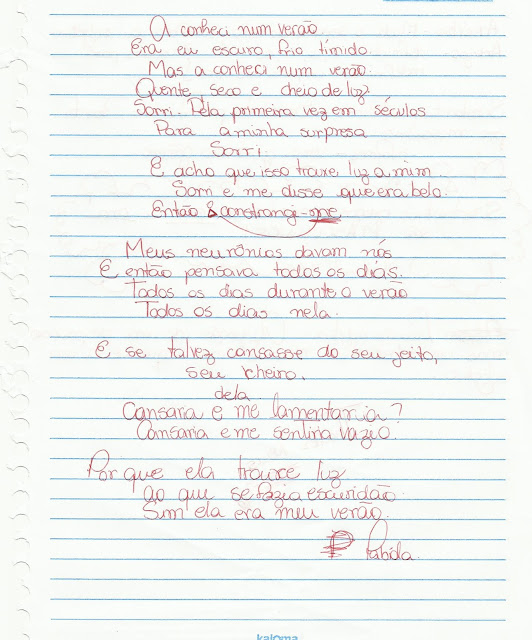 A conheci num verão
Era eu escuro, frio tímido.
Mas a conheci num verão.
Quente, seco e cheio de luz
Sorri. Pela primeira vez em séculos
Para a minha surpresa
Sorri.
E acho que isso trouxe luz a mim.
Som e me disse que era belo.
Então constrangi-me
Meus neurônios davam nós
E então pensava todos os dias.
Todos os dias durante o verão
Todos os dias nela.
E se talvez cansasse do seu jeito,
seu cheiro,
dela
Cansaria e me lamentaria?
Cansaria e me sentiria vazio.
Por que ela trouxe luz
ao que se fazia escuridão
Sim ela era meu verão.
Fabíola.
kajoma